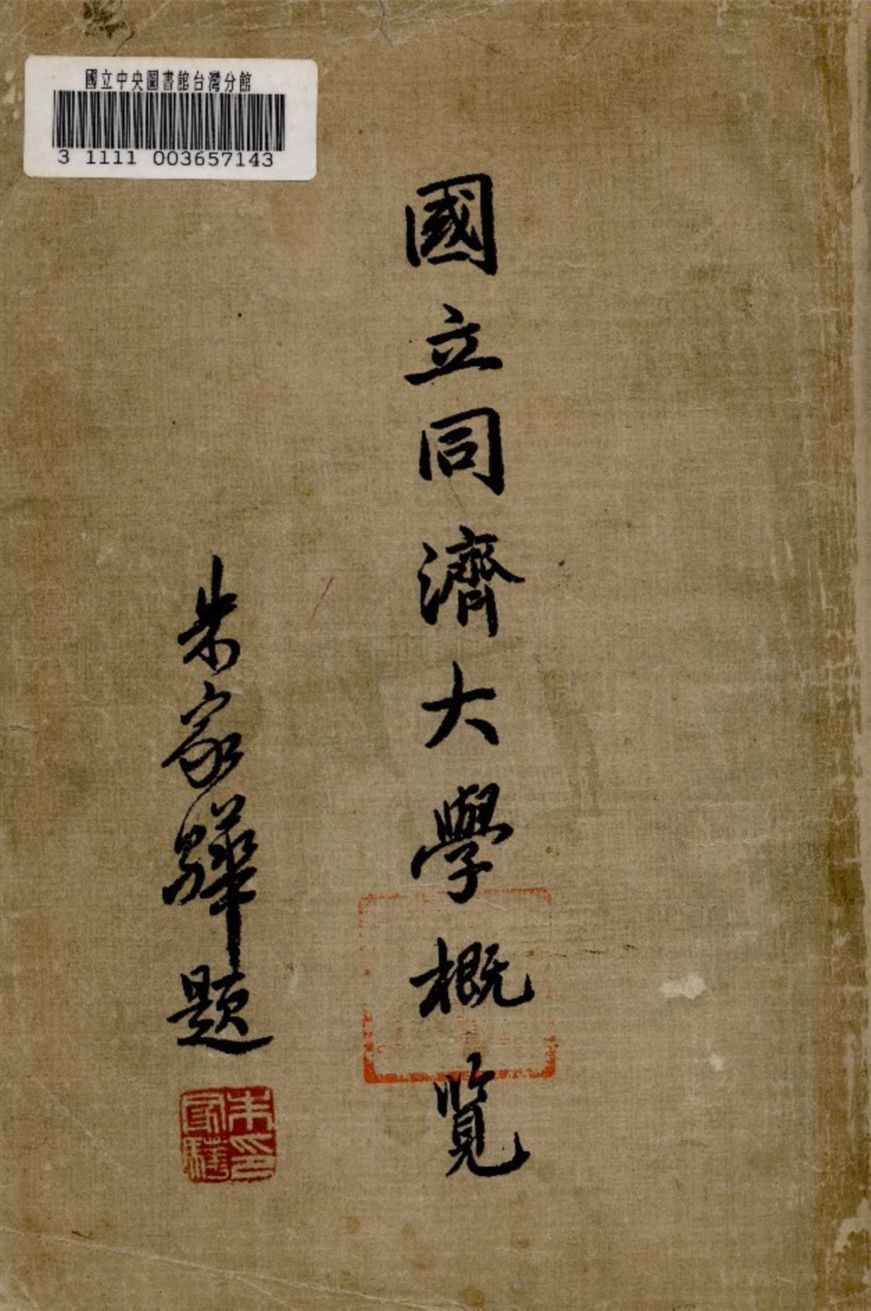 國立中央圖書館台灣分館
3 1111 003657143
國立同濟大學概覽
朱家驊題
朱家驊印